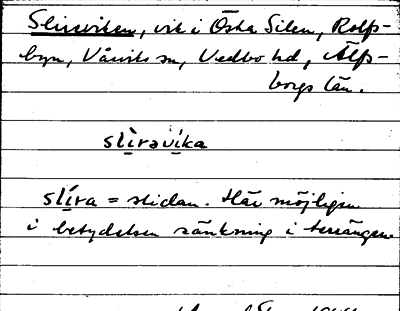 Slireviken, vik i Östra Silen, Rolfs-
byn, Vårviks sn, Vedbo hd, Älfs-
borgs län.
slìrəvíka
slíra = slidan. Här möjligen
i betydelsen sänkning i terrängen